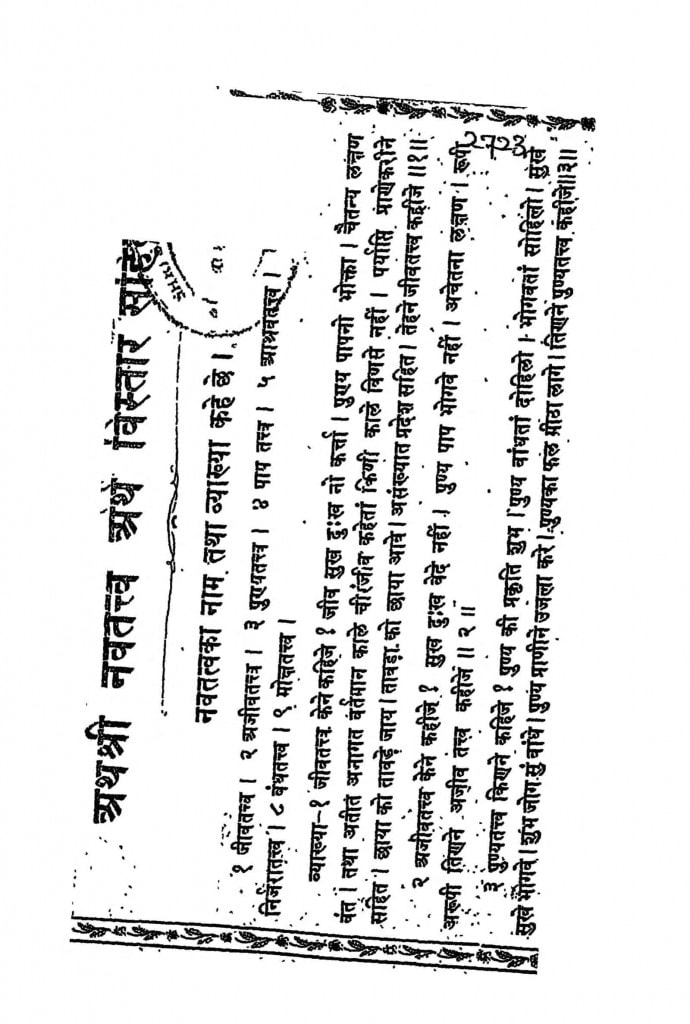 अथश्री नवतत्त्व अर्थ विस्तार
नवतत्वका नाम तथा व्याख्या कहे छे ।
१ जीवतत्त्व । २ अजीवतत्त्व । ३ पुण्यतत्त्व । ४ पाप तत्त्व । ५ आश्रवतत्त्व ।
निर्जरातत्त्व । ८ बंधतत्त्व । ९ मोक्षतत्त्व ।
व्याख्या-१ जीवतत्त्व केने कहिजे ? जीव सुख दुःख नो कर्त्ता । पुण्य पापनो भोक्ता । चैतन्य लक्षण
वंत । तथा अतीत अनागत वर्तमान काले चीरंजीव कहेतां किणी काले विणसे नहीं । पर्याप्ति प्राणेकरीने
सहित । छाया को तावड़े जाय । तावड़ा को छाया आवे । असंख्यात प्रदेश सहित । तेहने जीवतत्त्व कहीजे ॥१॥
२ अजीवतत्त्व केने कहीजे ? सुख दुःख वेदे नहीं । पुण्य पाप भोगवे नहीं । अचेतना लक्षण । रूपी
अरूपी तिणने अजीव तत्त्व कहीजे ॥ २ ॥
३ पुण्यतत्त्व किणने कहिजे ? पुण्य की प्रकृति शुभ । पुण्य बांधतां दोहिलो । भोगवतां सोहिलो । सुखे
सुखे भोगवे । शुभ जोग सुं बांधे । पुण्य प्राणीने उजला करे । पुण्यका फल मीठा लागे । तिणने पुण्यतत्त्व कहीजे ॥३॥
2723
SHRI